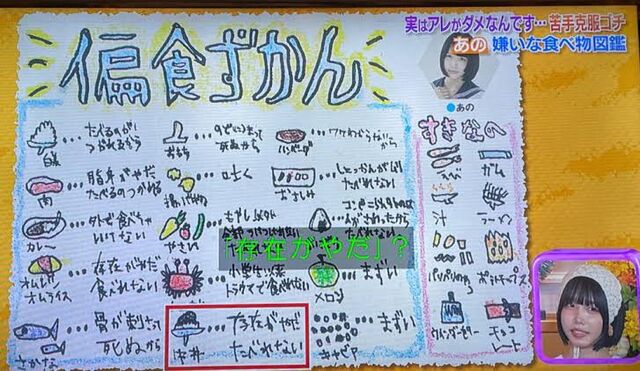 実はアレがダメなんです…苦手克服ゴチ
あの 嫌いな食べ物図鑑
●あの
偏食ずかん
白米
…たべるのがつかれるから
おもち
…のどにつまって死ぬから
ハンバーグ
…ワケわからないから
肉
…脂身がやだ
たべるのつかれる
揚げ物
…吐く
おさしみ
…しょっかんがムリ
たべれない
カレー
…外で食べちゃいけない
やさい
…もやし以外
…コンビニ以外のは
人がさわったから
たべれない
「存在がやだ」?
オムレツ
オムライス
…存在がやだ
食べれない
…小学生の時
トラウマで食べれない
メロン
…まずい
さかな
…骨が刺さって
死ぬから
天丼
…存在がやだ
たべれない
キャビア
…まずい
すきなもの
なべ
ガム
汁
ラーメン
ポテトチップス
ウイダーゼリー
チョコレート